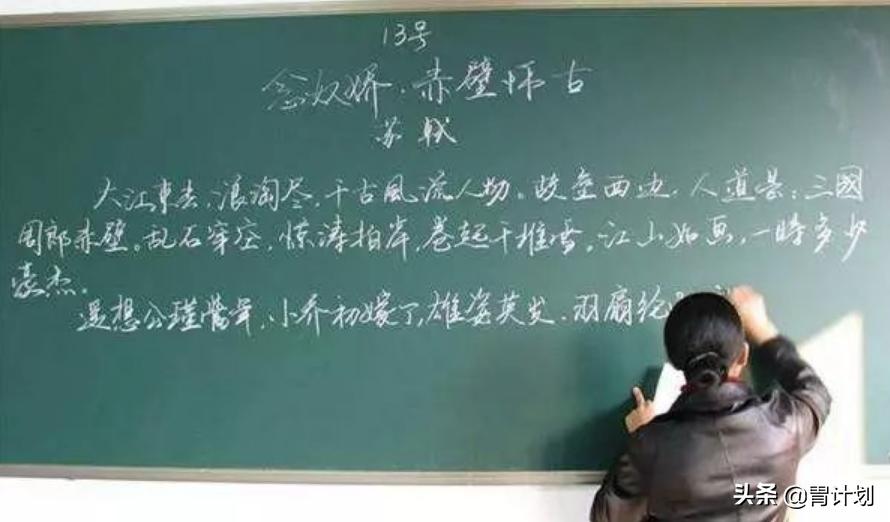 13号
念奴娇·赤壁怀古
苏轼
大江東去,浪淘尽,千古風流人物。故垒西边,人道是:三國
周郎赤壁。乱石穿空,惊涛拍岸,卷起千堆雪,江山如画,一時多少
豪杰。
遥想公瑾當年,小乔初嫁了,雄姿英发.羽扇纶
头条 @胃计划